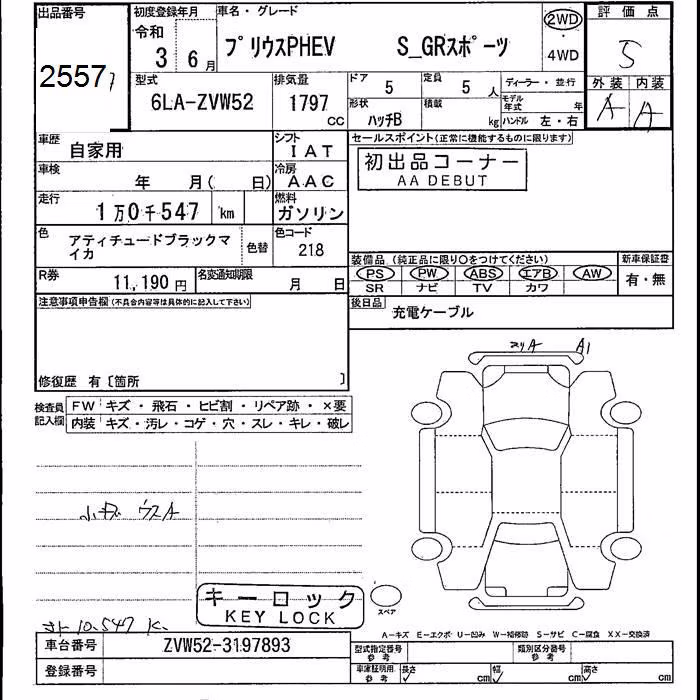 出品番号 初度登録年月 車名・グレード 2WD 評価点
令和 3 6月 プリウスPHEV S_GRスポーツ ・ 4WD 5
25577 型式 排気量 ドア 定員 ディーラー・並行 外装 内装
6LA-ZVW52 1797 CC 5 5人 モデル年式 年 A A
形状 積載
ハッチB kg ハンドル 左・右
車歴 自家用 シフト IAT セールスポイント(正常に機能するものに限ります)
車検 年 月( 日) 冷房 AAC 初出品コーナー
AA DEBUT
走行 1万0千547 km 燃料 ガソリン
色 アティチュードブラックマイカ 色替 色コード 218
装備品(純正品に限り○をつけてください) 新車保証書
R券 11,190円 名変通知期限 月 日 PS PW ABS エアB AW 有・無
SR ナビ TV カワ
注意事項申告欄(不具合内容等は具体的に記入して下さい) 後日品 充電ケーブル
修復歴 有〔箇所 〕
検査員記入欄 FW キズ・飛石・ヒビ割・リペア跡・×要
内装 キズ・汚レ・コゲ・穴・スレ・キレ・破レ
A A1
小キズ ウスA
キーロック
KEY LOCK
スペア
10,547 K
A-キズ E-エクボ U-凹み W-補修跡 S-サビ C-腐食 XX-交換済
車台番号 ZVW52-3197893 型式指定番号 参考 類別区分番号 参考
登録番号 車庫証明用 参考 長さ cm 幅 cm 高さ cm